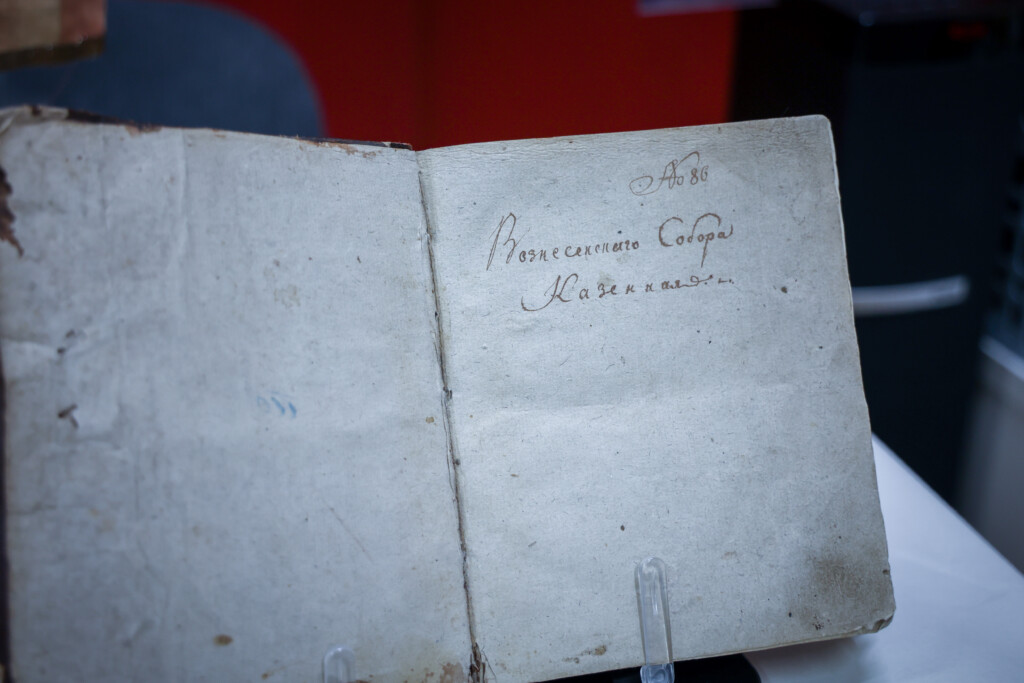 № 86
Вознесенскаго Собора
Казенная